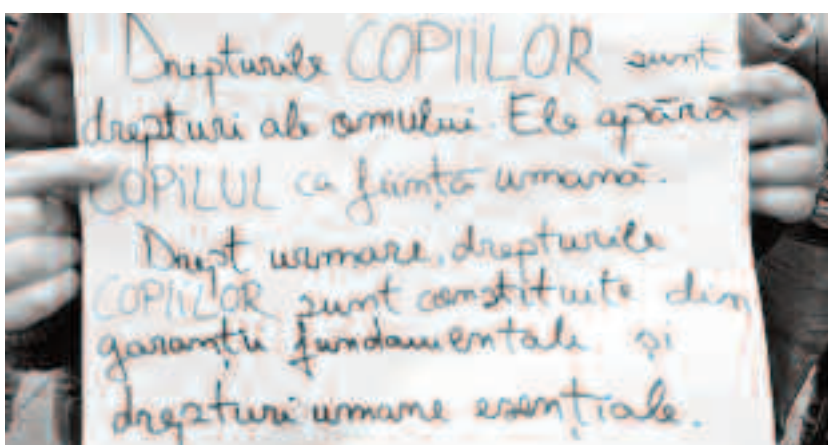 Drepturile COPIILOR sunt
drepturi ale omului. Ele apără
COPILUL ca ființă umană.
Drept urmare, drepturile
COPIILOR sunt constituite din
garanții fundamentale și
drepturi umane esențiale.